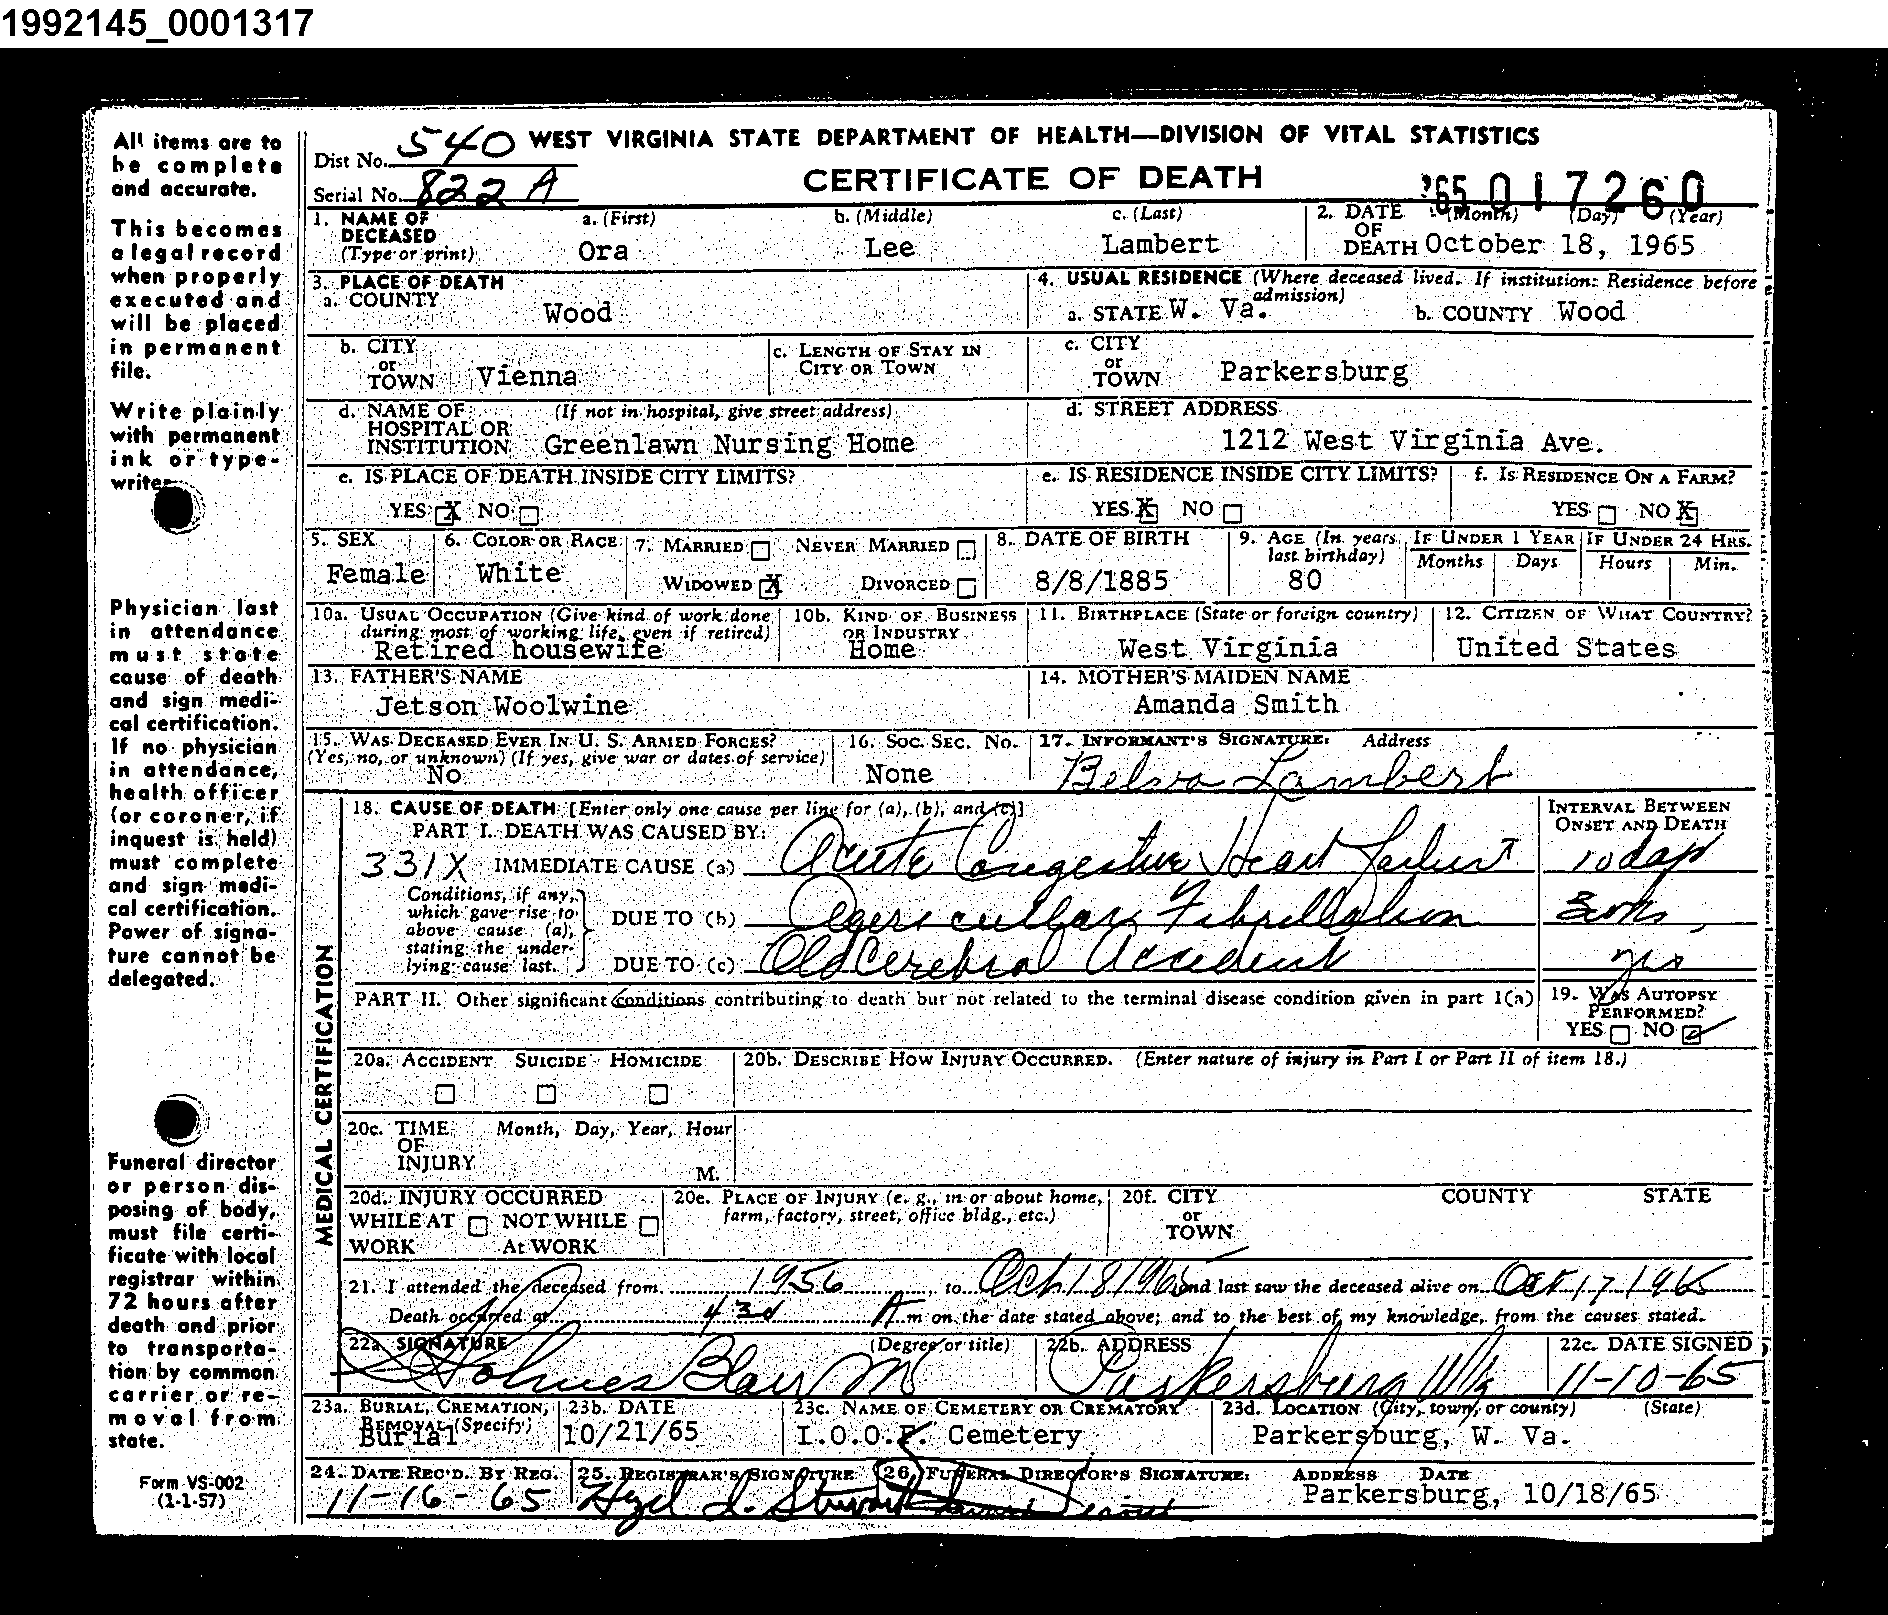 1992145_0001317
All items are to
be complete
and accurate.
This becomes
a legal record
when properly
executed and
will be placed
in permanent
file.
Write plainly
with permanent
ink or type-
writer
Physician last
in attendance
must state
cause of death
and sign medi-
cal certification.
If no physician
in attendance,
health officer
(or coroner, if
inquest is held)
must complete
and sign medi-
cal certification.
Power of signa-
ture cannot be
delegated.
Funeral director
or person dis-
posing of body,
must file certi-
ficate with local
registrar within
72 hours after
death and prior
to transporta-
tion by common
carrier or re-
moval from
state.
Form VS-002
(1-1-57)
Dist No. 540 WEST VIRGINIA STATE DEPARTMENT OF HEALTH—DIVISION OF VITAL STATISTICS
Serial No. 822 A CERTIFICATE OF DEATH '65 017260
1. NAME OF DECEASED (Type or print) a. (First) b. (Middle) c. (Last) 2. DATE OF DEATH (Month) (Day) (Year)
Ora Lee Lambert October 18, 1965
3. PLACE OF DEATH 4. USUAL RESIDENCE (Where deceased lived. If institution: Residence before admission)
a. COUNTY Wood a. STATE W. Va. b. COUNTY Wood
b. CITY or TOWN Vienna c. LENGTH OF STAY IN CITY OR TOWN c. CITY or TOWN Parkersburg
d. NAME OF HOSPITAL OR INSTITUTION (If not in hospital, give street address) Greenlawn Nursing Home d. STREET ADDRESS 1212 West Virginia Ave.
e. IS PLACE OF DEATH INSIDE CITY LIMITS? e. IS RESIDENCE INSIDE CITY LIMITS? f. IS RESIDENCE ON A FARM?
YES X NO YES X NO YES NO X
5. SEX 6. COLOR OR RACE 7. MARRIED NEVER MARRIED 8. DATE OF BIRTH 9. AGE (In years last birthday) IF UNDER 1 YEAR IF UNDER 24 HRS.
Months Days Hours Min.
Female White WIDOWED X DIVORCED 8/8/1885 80
10a. USUAL OCCUPATION (Give kind of work done during most of working life, even if retired) 10b. KIND OF BUSINESS OR INDUSTRY 11. BIRTHPLACE (State or foreign country) 12. CITIZEN OF WHAT COUNTRY?
Retired housewife Home West Virginia United States
13. FATHER'S NAME 14. MOTHER'S MAIDEN NAME
Jetson Woolwine Amanda Smith
15. WAS DECEASED EVER IN U. S. ARMED FORCES? 16. SOC. SEC. No. 17. INFORMANT'S SIGNATURE: Address
(Yes, no, or unknown) (If yes, give war or dates of service)
No None Belva Lambert
MEDICAL CERTIFICATION
18. CAUSE OF DEATH [Enter only one cause per line for (a), (b), and (c)] INTERVAL BETWEEN ONSET AND DEATH
PART I. DEATH WAS CAUSED BY:
331X IMMEDIATE CAUSE (a) Acute Congestive Heart Failure 10 days
Conditions, if any, which gave rise to above cause (a), stating the underlying cause last.
DUE TO (b) Fibrillation
DUE TO (c) Old Cerebral Accident yrs
PART II. Other significant conditions contributing to death but not related to the terminal disease condition given in part I(a) 19. WAS AUTOPSY PERFORMED?
YES NO
20a. ACCIDENT SUICIDE HOMICIDE 20b. DESCRIBE HOW INJURY OCCURRED. (Enter nature of injury in Part I or Part II of item 18.)
20c. TIME OF INJURY Month, Day, Year, Hour M.
20d. INJURY OCCURRED 20e. PLACE OF INJURY (e. g., in or about home, farm, factory, street, office bldg., etc.) 20f. CITY or TOWN COUNTY STATE
WHILE AT WORK NOT WHILE At WORK
21. I attended the deceased from 1956, to Oct 18 1965 and last saw the deceased alive on Oct 17 1965
Death occurred at 430 A m on the date stated above; and to the best of my knowledge, from the causes stated.
22a. SIGNATURE (Degree or title) 22b. ADDRESS 22c. DATE SIGNED
Holmes Blair MD Parkersburg WVa 11-10-65
23a. BURIAL, CREMATION, REMOVAL (Specify) 23b. DATE 23c. NAME OF CEMETERY OR CREMATORY 23d. LOCATION (City, town, or county) (State)
Burial 10/21/65 I.O.O.F. Cemetery Parkersburg, W. Va.
24. DATE REC'D. BY REG. 25. REGISTRAR'S SIGNATURE 26. FUNERAL DIRECTOR'S SIGNATURE: ADDRESS DATE
11-16-65 Hazel Parkersburg, 10/18/65